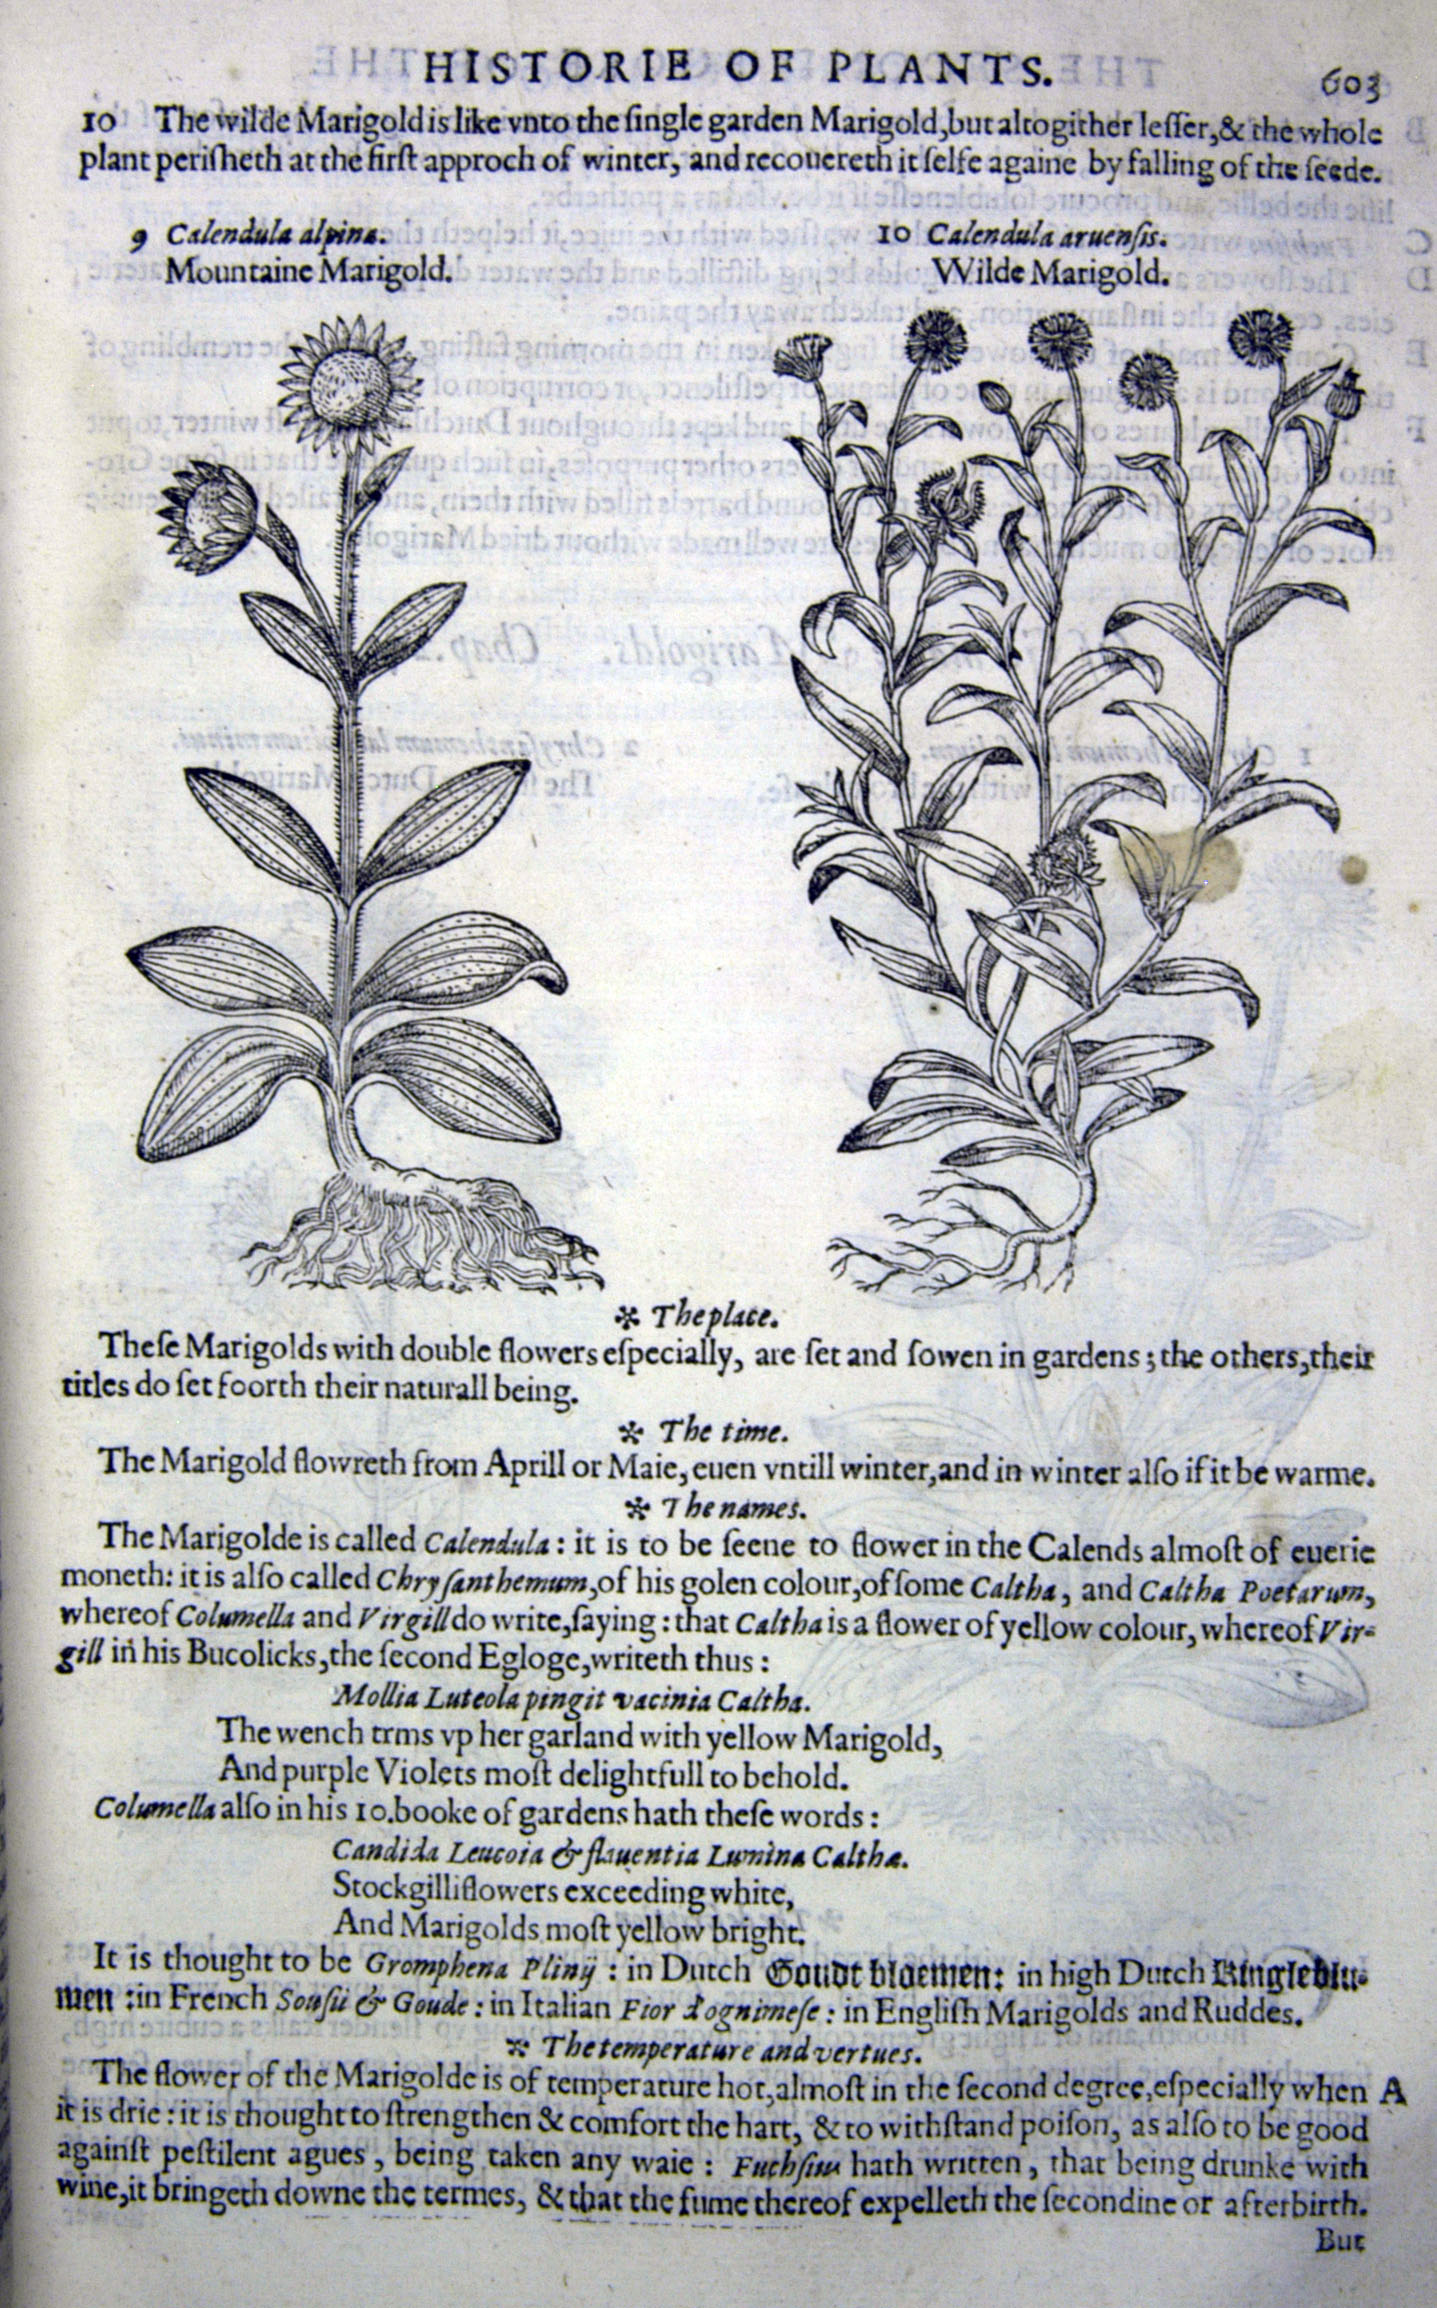 HISTORIE OF PLANTS. 603
10 The wilde Marigold is like vnto the ſingle garden Marigold, but altogither leſſer, & the whole
plant periſheth at the firſt approch of winter, and recouereth it ſelfe againe by falling of the ſeede.
9 Calendula alpina.
Mountaine Marigold.
10 Calendula aruenſis.
Wilde Marigold.
* The place.
Theſe Marigolds with double flowers eſpecially, are ſet and ſowen in gardens; the others, their
titles do ſet foorth their naturall being.
* The time.
The Marigold flowreth from Aprill or Maie, euen vntill winter, and in winter alſo if it be warme.
* The names.
The Marigolde is called Calendula: it is to be ſeene to flower in the Calends almoſt of euerie
moneth: it is alſo called Chryſanthemum, of his golen colour, of ſome Caltha, and Caltha Poetarum,
whereof Columella and Virgill do write, ſaying: that Caltha is a flower of yellow colour, whereof Vir-
gill in his Bucolicks, the ſecond Egloge, writeth thus:
Mollia Luteola pingit vacinia Caltha.
The wench trms vp her garland with yellow Marigold,
And purple Violets moſt delightfull to behold.
Columella alſo in his 10. booke of gardens hath theſe words:
Candida Leucoia & flauentia Lumina Calthæ.
Stockgilliflowers exceeding white,
And Marigolds moſt yellow bright.
It is thought to be Gromphena Plinij: in Dutch Goudt bloemen: in high Dutch Ringleblu-
men: in French Souſii & Goude: in Italian Fior d'ogni meſe: in Engliſh Marigolds and Ruddes.
* The temperature and vertues.
The flower of the Marigolde is of temperature hot, almoſt in the ſecond degree, eſpecially when A
it is drie: it is thought to ſtrengthen & comfort the hart, & to withſtand poiſon, as alſo to be good
againſt peſtilent agues, being taken any waie: Fuchſius hath written, that being drunke with
wine, it bringeth downe the termes, & that the fume thereof expelleth the ſecondine or afterbirth.
But